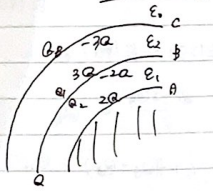 ε₀ C
Q₃ -3Q ε₂ B
3Q -2Q ε₁
Q₁ Q₂ 2Q A
Q